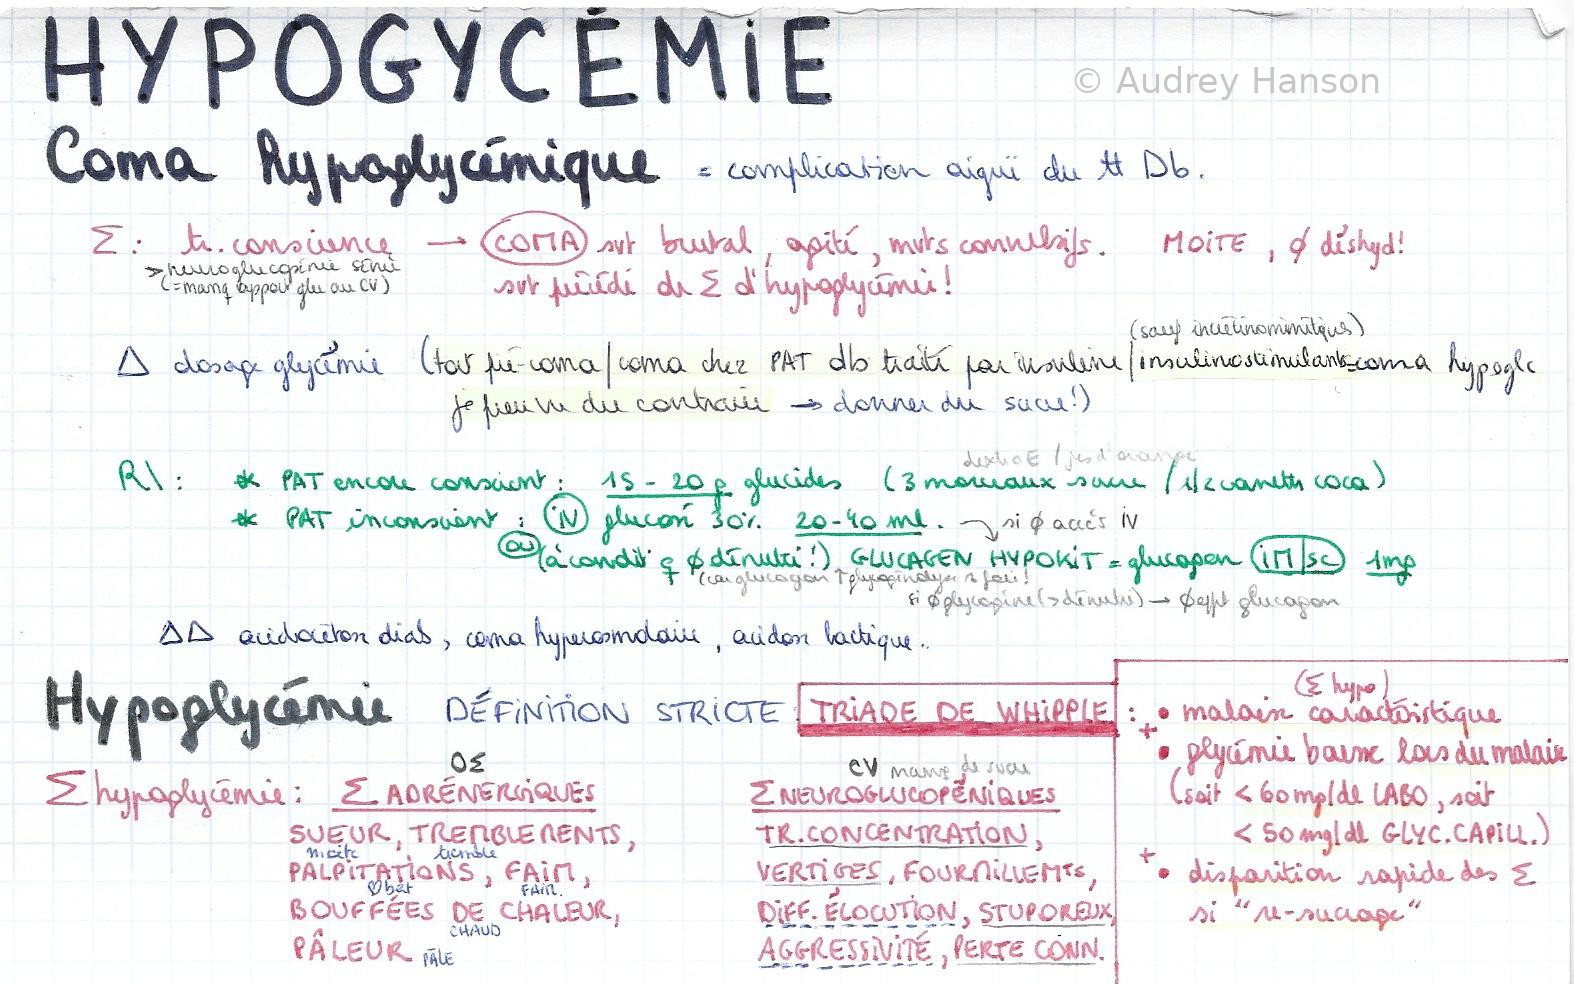 HYPOGYCÉMIE
© Audrey Hanson
Coma hypoglycémique = complication aiguë du tt Db.
Σ : tr. conscience → COMA svt brutal, agité, mvts convulsifs. MOITE, ∅ déshyd!
> neuroglucopénie sévère
(= manq apport glu au CV)
svt précédé de Σ d'hypoglycémie!
(sauf incrétinomimétiques)
Δ dosage glycémie (tout pré-coma/coma chez PAT db traité par insuline/insulinostimulant = coma hypoglc
jq preuve du contraire → donner du sucre!)
dextroE / jus d'orange
R\ : * PAT encore conscient : 15 - 20 g glucides (3 morceaux sucre / 1/2 canette coca)
* PAT inconscient : IV glucosé 30% 20-40 ml. si ∅ accès IV
ou (à condit° q ∅ dénutri!) GLUCAGEN HYPOKIT = glucagon IM/SC 1mg
(car glucagon ↑ glycogénolyse foie!
si ∅ glycogène (> dénutri) → ∅ effet glucagon
ΔΔ acidocétose diab, coma hyperosmolaire, acidose lactique..
Hypoglycémie DÉFINITION STRICTE TRIADE DE WHIPPLE :
(Σ hypo)
• malaise caractéristique
+
• glycémie basse lors du malaise
(soit < 60 mg/dl LABO, soit
< 50 mg/dl GLYC. CAPILL.)
+
• disparition rapide des Σ
si "re-sucrage"
OΣ
Σ hypoglycémie : Σ ADRÉNERGIQUES
SUEUR, TREMBLEMENTS,
moite tremble
PALPITATIONS, FAIM,
♡ bat FAIM.
BOUFFÉES DE CHALEUR,
CHAUD
PÂLEUR PÂLE
CV manq de sucre
Σ NEUROGLUCOPÉNIQUES
TR. CONCENTRATION,
VERTIGES, FOURMILLEMTS,
DIFF. ÉLOCUTION, STUPOREUX,
AGGRESSIVITÉ, PERTE CONN.